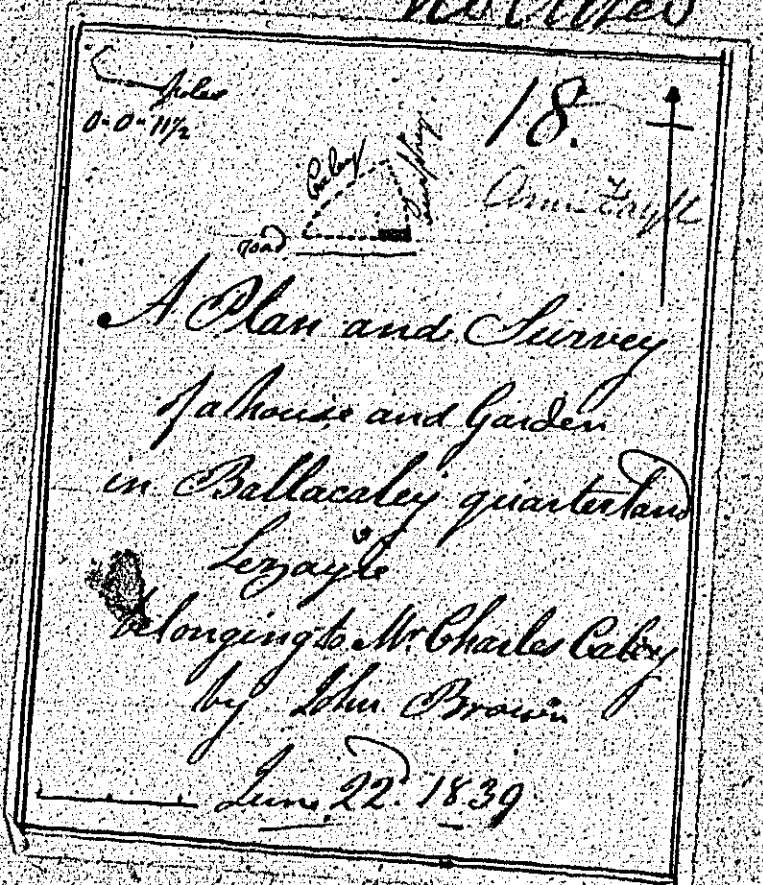 poles
0-0-11½
18.
Caley
road
A Plan and Survey
of a house and Garden
in Ballacaley quarterland
of
Lezayre
belonging to Mr Charles Caley
by John Brown
June 22d 1839